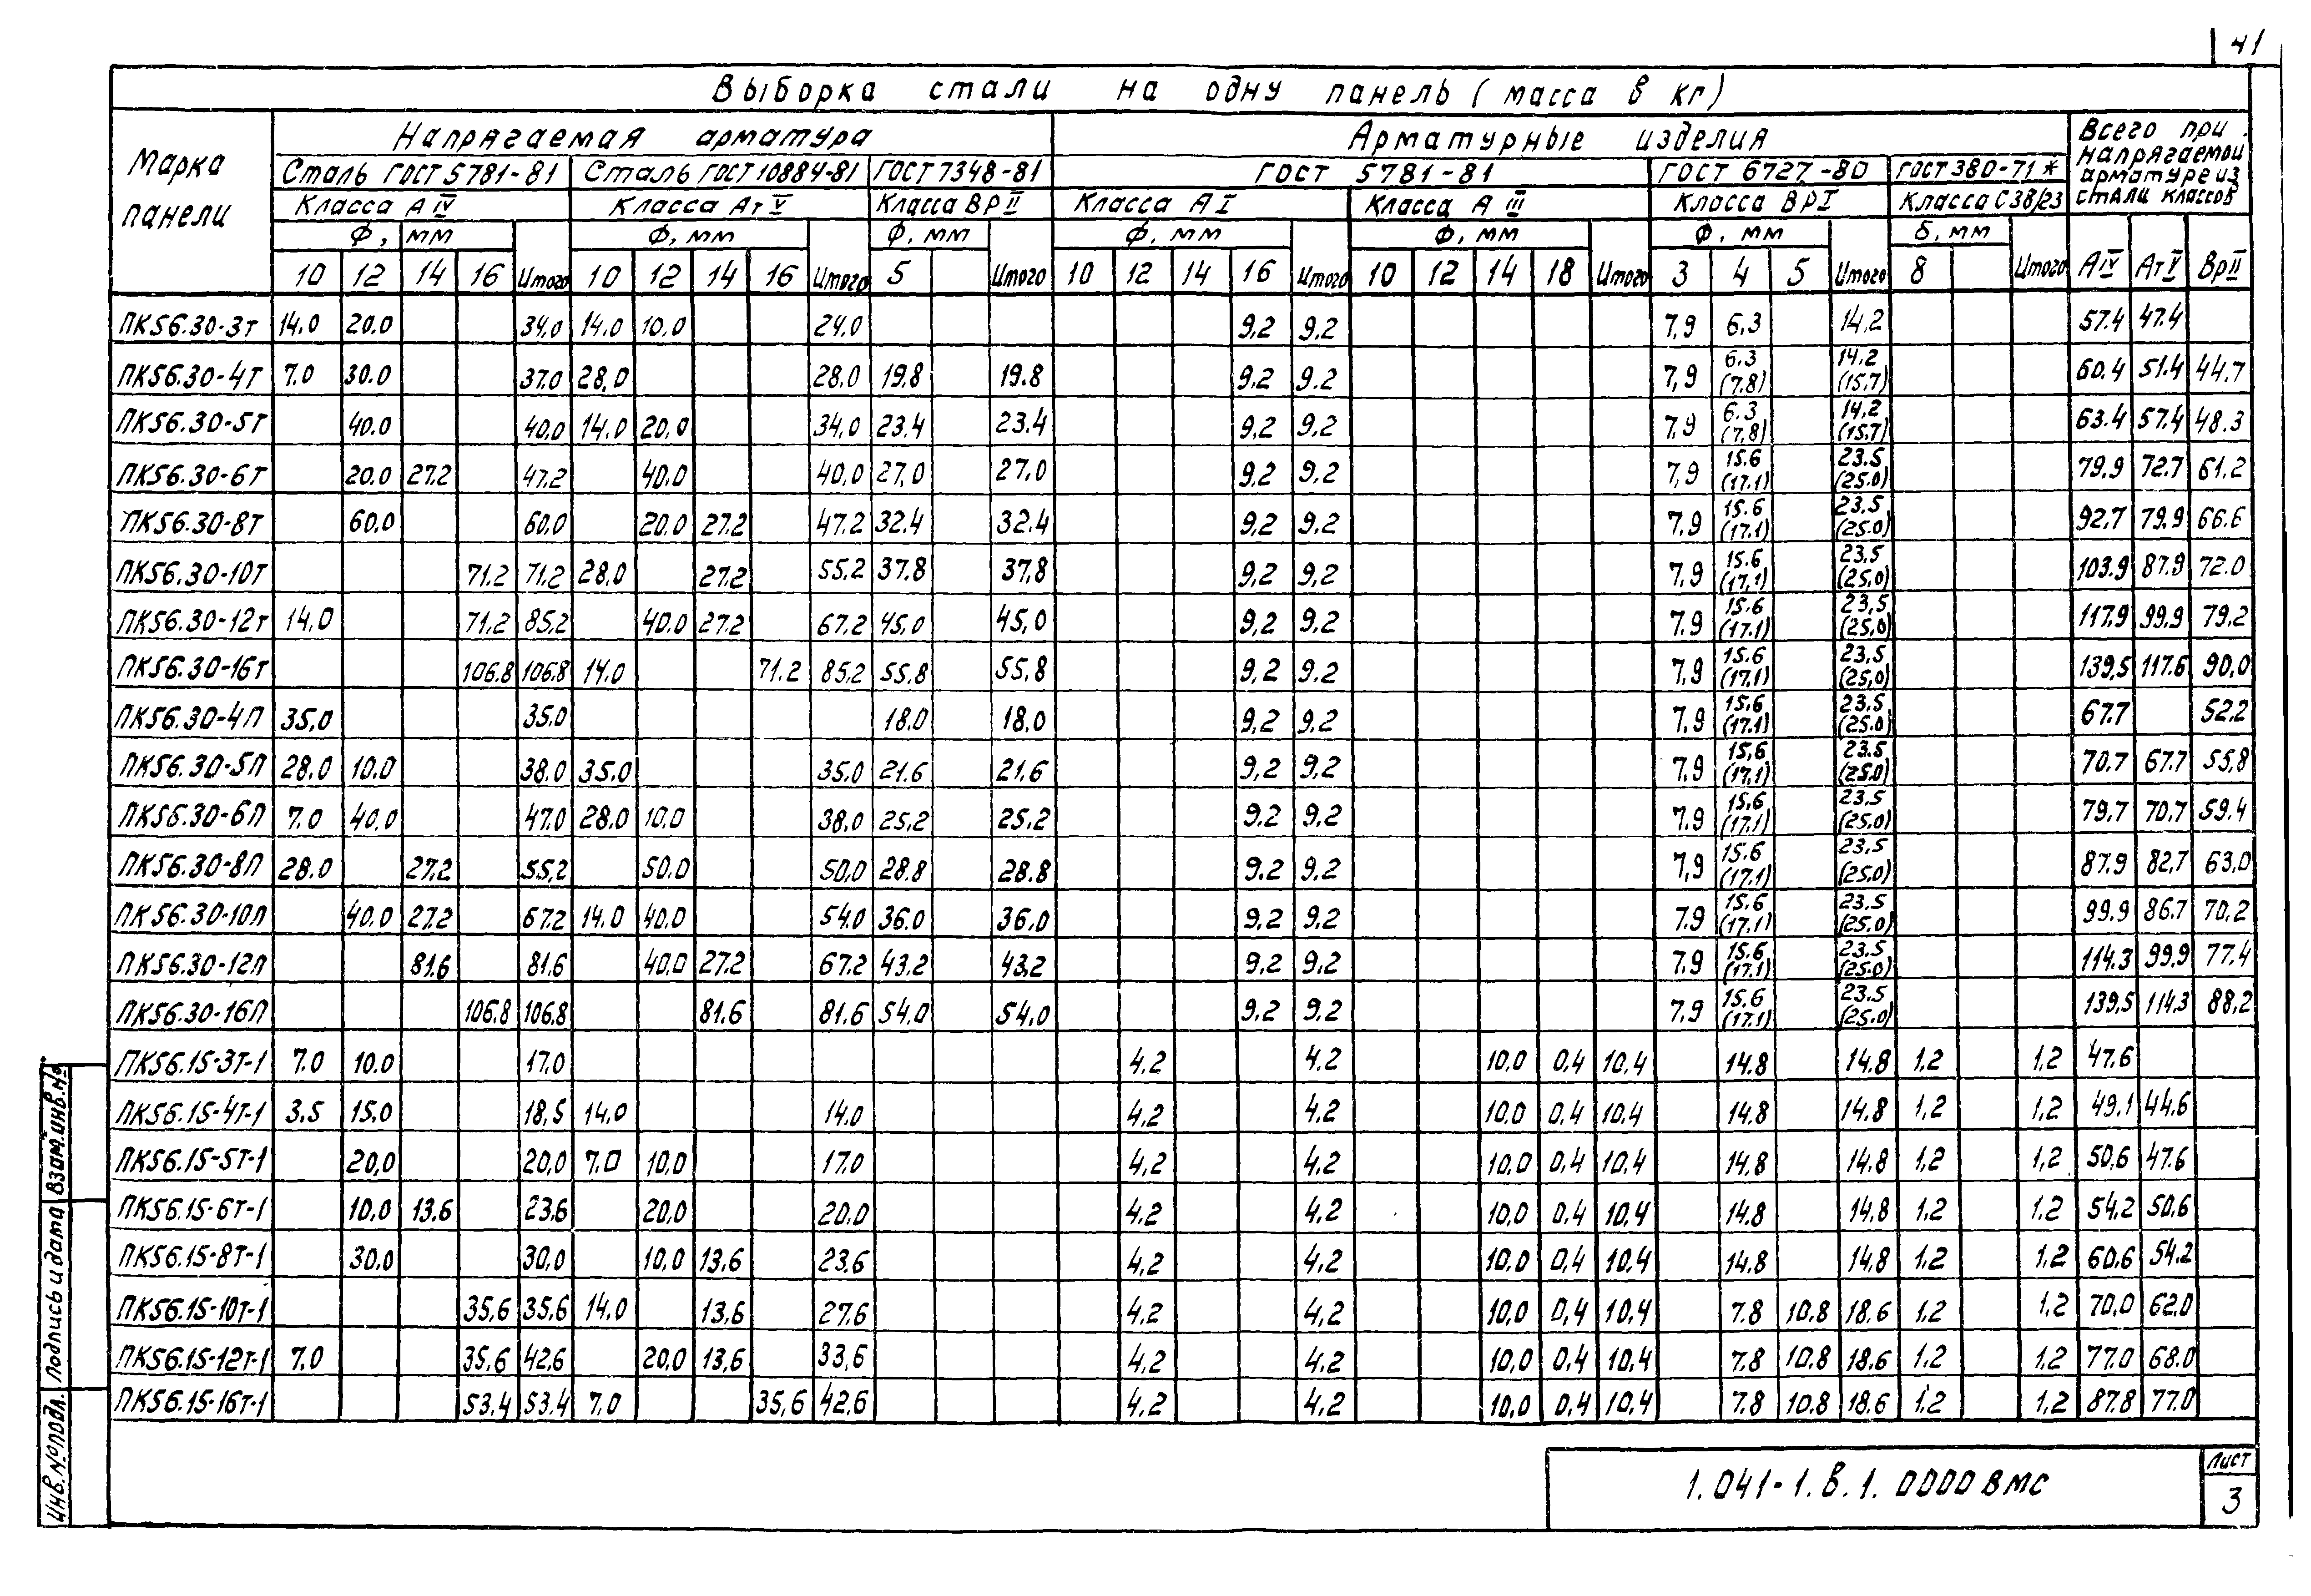 41
Выборка стали на одну панель (масса в кг)
Марка панели
Напрягаемая арматура
Арматурные изделия
Всего при напрягаемой арматуре из стали классов
Сталь ГОСТ 5781-81 Сталь ГОСТ 10884-81 ГОСТ 7348-81 ГОСТ 5781-81 ГОСТ 6727-80 ГОСТ 380-71*
Класса А IV Класса Ат V Класса ВР II Класса А I Класса А III Класса ВР I Класса С38/23
Ф, мм Ф, мм Ф, мм Ф, мм Ф, мм Ф, мм δ, мм
10 12 14 16 Итого 10 12 14 16 Итого 5 Итого 10 12 14 16 Итого 10 12 14 18 Итого 3 4 5 Итого 8 Итого АIV АтV ВрII
ПК56.30-3т 14.0 20.0 34.0 14.0 10.0 24.0 9.2 9.2 7,9 6,3 14,2 57.4 47.4
ПК56.30-4т 7.0 30.0 37.0 28,0 28.0 19.8 19.8 9.2 9.2 7,9 6.3 (7.8) 14.2 (15,7) 60.4 51.4 44.7
ПК56.30-5т 40.0 40.0 14.0 20.0 34.0 23.4 23.4 9.2 9.2 7.9 6.3 (7.8) 14,2 (15.7) 63.4 57.4 48.3
ПК56.30-6т 20.0 27.2 47.2 40.0 40.0 27,0 27,0 9,2 9,2 7,9 15.6 (17.1) 23.5 (25.0) 79.9 72.7 61.2
ПК56.30-8т 60.0 60.0 20.0 27.2 47.2 32.4 32.4 9.2 9.2 7.9 15.6 (17.1) 23,5 (25.0) 92.7 79.9 66.6
ПК56.30-10т 71.2 71.2 28,0 27.2 55.2 37.8 37,8 9,2 9,2 7.9 15.6 (17,1) 23,5 (25,0) 103.9 87.9 72.0
ПК56.30-12т 14,0 71,2 85,2 40.0 27.2 67.2 45,0 45,0 9,2 9,2 7.9 15.6 (17.1) 23,5 (25,0) 117.9 99.9 79.2
ПК56.30-16т 106.8 106.8 14.0 71.2 85,2 55.8 55,8 9,2 9.2 7,9 15.6 (17,1) 23,5 (25,0) 139,5 117.6 90,0
ПК56.30-4П 35,0 35.0 18.0 18.0 9,2 9,2 7.9 15,6 (17.1) 23.5 (25.0) 67.7 52.2
ПК56.30-5П 28.0 10.0 38.0 35.0 35.0 21.6 21,6 9,2 9.2 7.9 15,6 (17,1) 23.5 (25.0) 70.7 67.7 55,8
ПК56.30-6П 7.0 40,0 47.0 28.0 10.0 38.0 25,2 25,2 9.2 9.2 7.9 15,6 (17,1) 23.5 (25.0) 79,7 70,7 59.4
ПК56.30-8П 28.0 27.2 55,2 50.0 50,0 28.8 28.8 9.2 9.2 7,9 15.6 (17.1) 23,5 (25,0) 87.9 82,7 63,0
ПК56.30-10П 40.0 27.2 67.2 14.0 40.0 54.0 36.0 36,0 9,2 9,2 7.9 15.6 (17.1) 23.5 (25.0) 99.9 86.7 70,2
ПК56.30-12П 81.6 81.6 40,0 27.2 67.2 43.2 43,2 9.2 9,2 7.9 15.6 (17.1) 23.5 (25.0) 114.3 99.9 77.4
ПК56.30-16П 106.8 106.8 81.6 81.6 54.0 54,0 9.2 9.2 7.9 15.6 (17.1) 23.5 (25.0) 139,5 114.3 88,2
ПК56.15-3Т-1 7.0 10.0 17.0 4.2 4.2 10,0 0,4 10,4 14.8 14.8 1,2 1,2 47.6
ПК56.15-4Т-1 3.5 15,0 18,5 14,0 14.0 4,2 4.2 10,0 0.4 10.4 14.8 14.8 1,2 1,2 49.1 44.6
ПК56.15-5Т-1 20,0 20,0 7.0 10,0 17.0 4,2 4,2 10,0 0,4 10,4 14,8 14.8 1,2 1,2 50,6 47.6
ПК56.15-6Т-1 10,0 13,6 23,6 20,0 20.0 4.2 4.2 10,0 0.4 10,4 14.8 14,8 1,2 1.2 54,2 50,6
ПК56.15-8Т-1 30,0 30.0 10,0 13,6 23.6 4,2 4,2 10,0 0,4 10,4 14.8 14,8 1,2 1,2 60,6 54.2
ПК56.15-10Т-1 35,6 35,6 14,0 13,6 27,6 4,2 4,2 10,0 0,4 10,4 7.8 10,8 18,6 1,2 1,2 70,0 62,0
ПК56.15-12Т-1 7.0 35,6 42,6 20,0 13,6 33,6 4,2 4,2 10,0 0,4 10,4 7.8 10,8 18,6 1,2 1.2 77.0 68.0
ПК56.15-16Т-1 53,4 53.4 7.0 35,6 42,6 4.2 4,2 10,0 0,4 10,4 7.8 10.8 18.6 1,2 1,2 87.8 77.0
Инв.№подл. Подпись и дата Взам.инв.№
1.041-1.в.1.0000ВМС
Лист
3